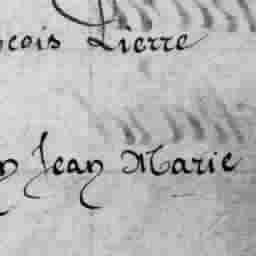 çois Pierre
n Jean Marie